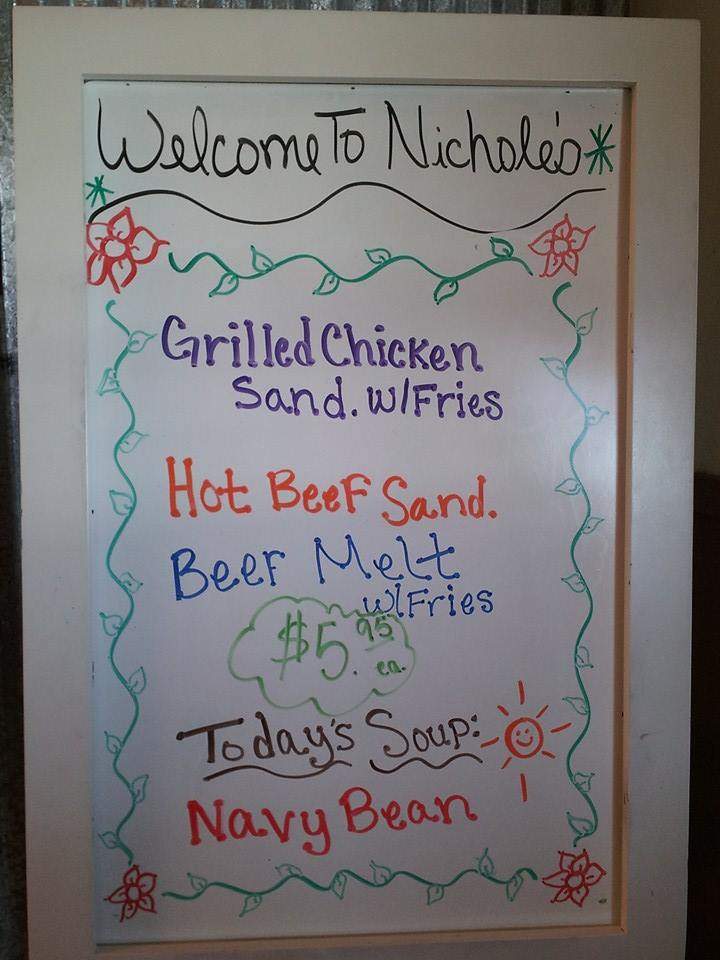 Welcome To Nichole's
Grilled Chicken
Sand. w/Fries
Hot Beef Sand.
Beef Melt
w/Fries
$5.95 ea.
Today's Soup:
Navy Bean